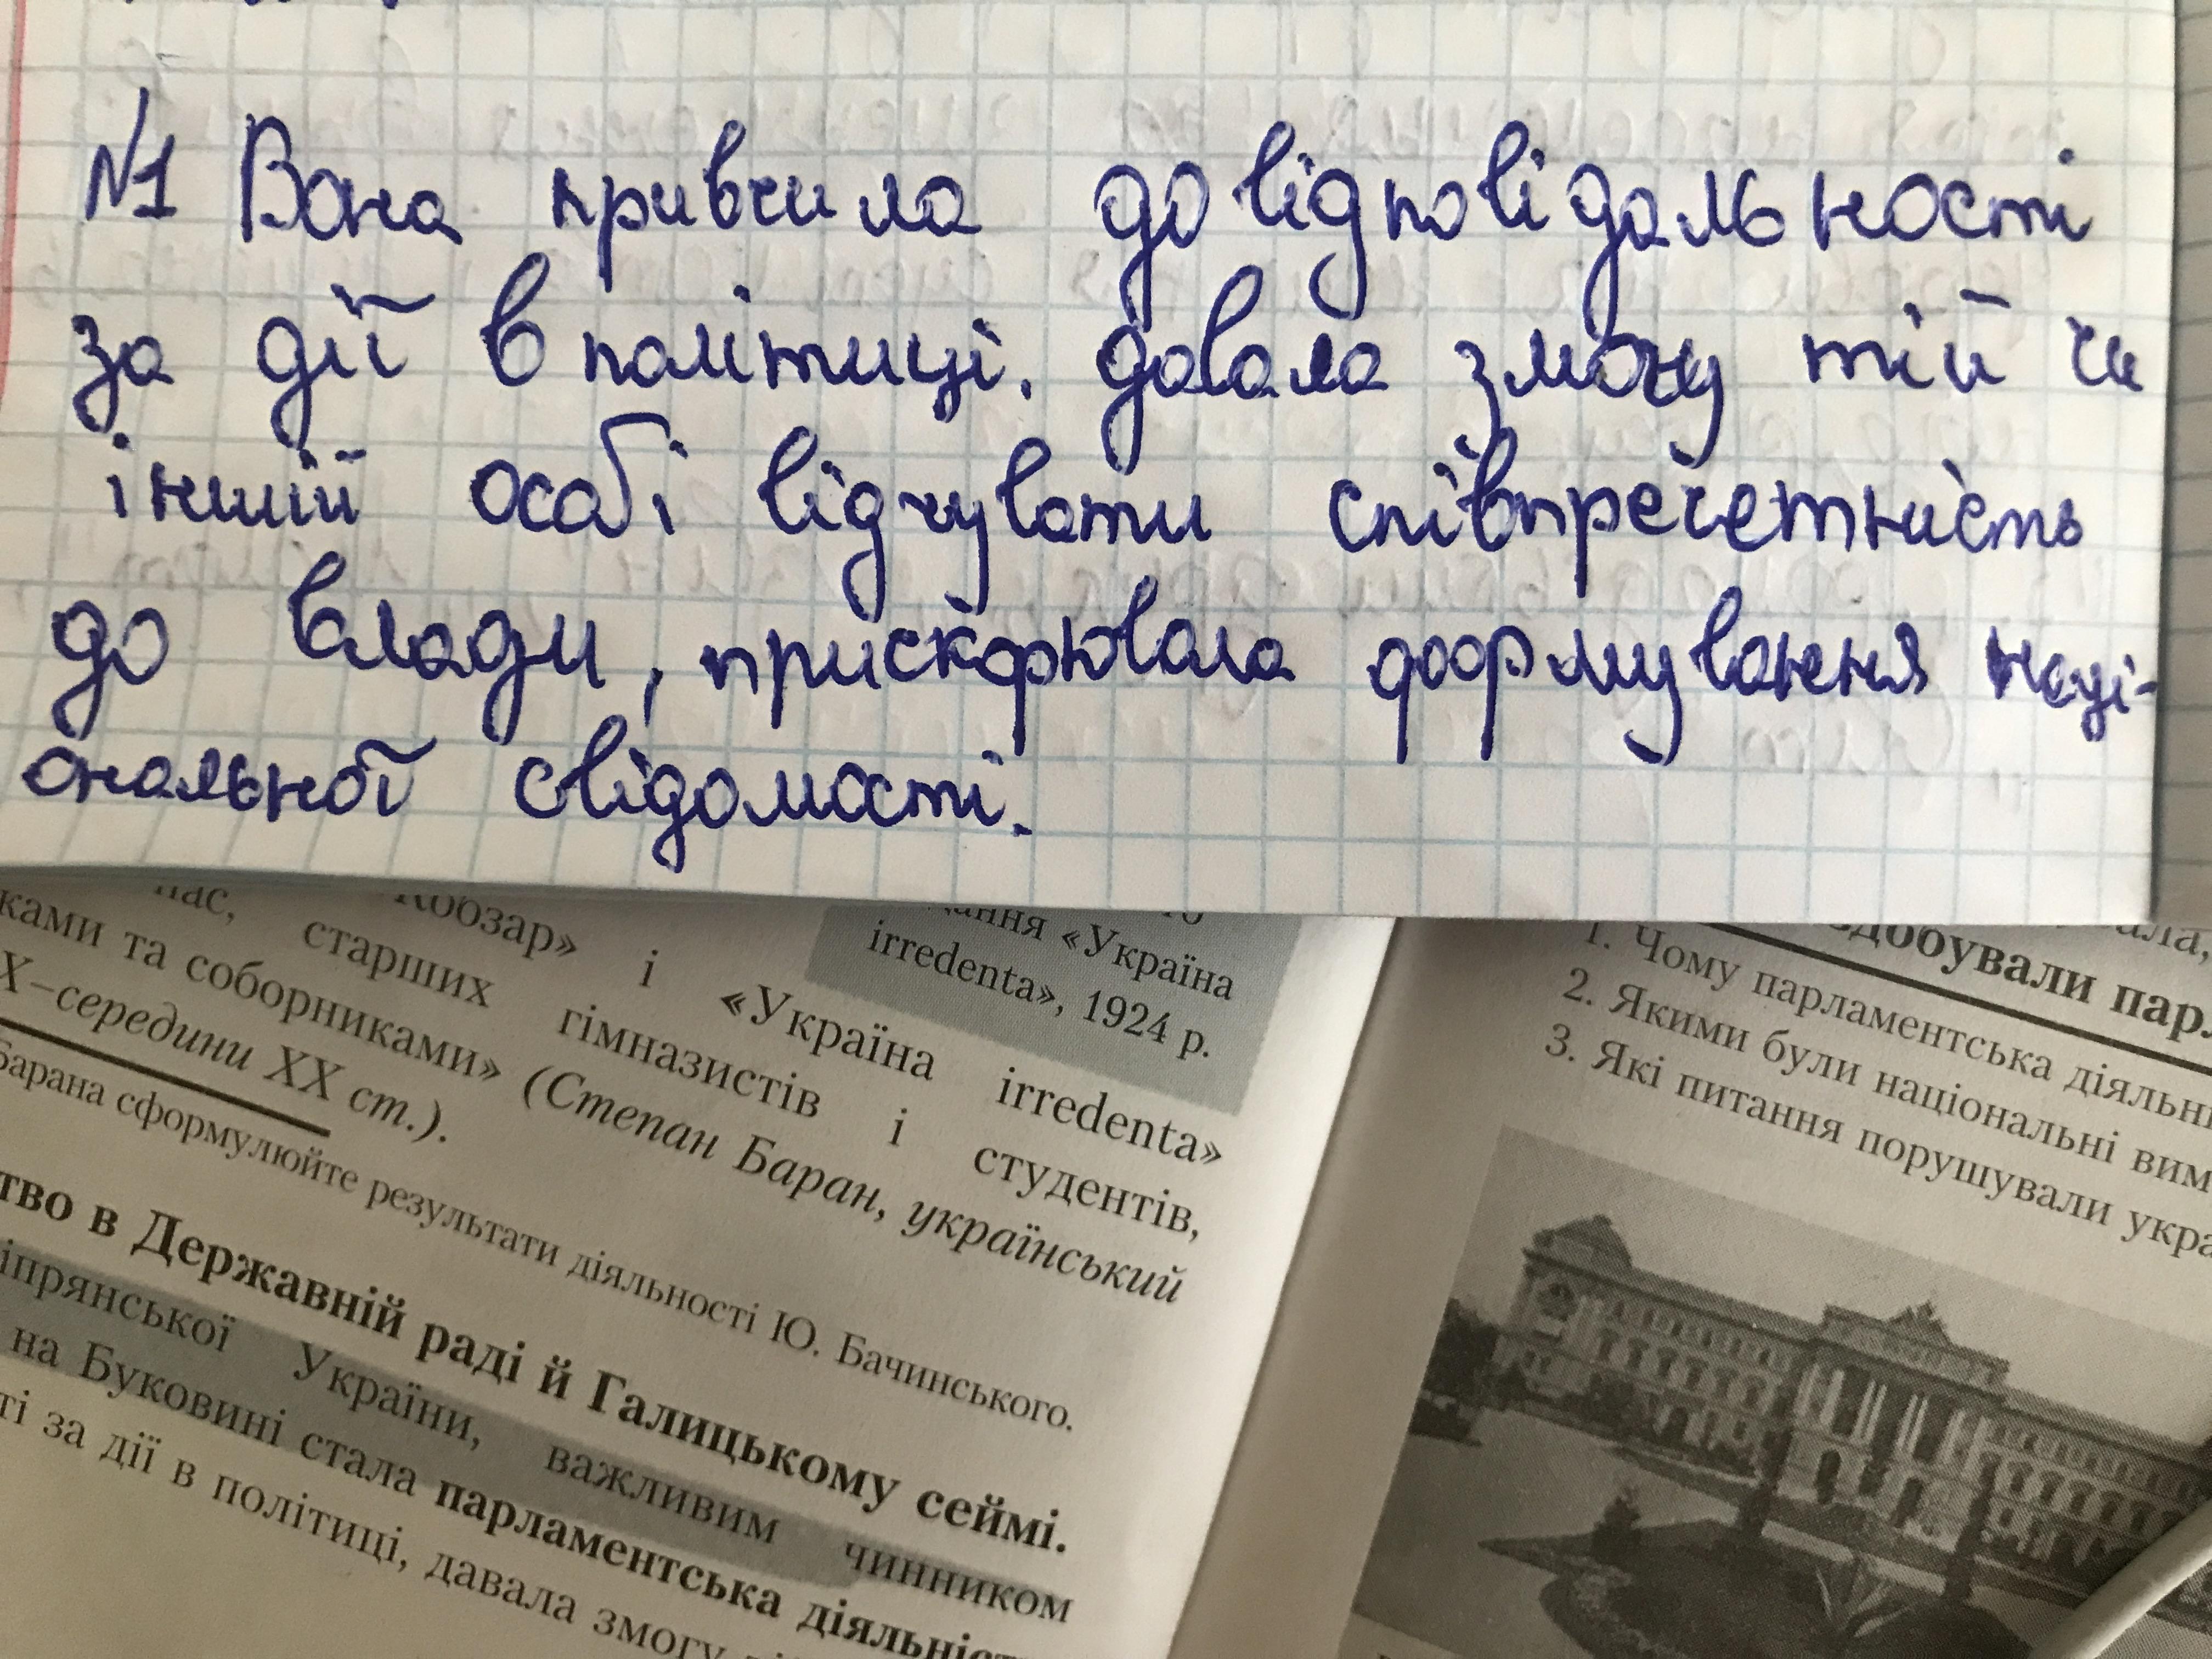 №1 Вона привчила до відповідальності
за дії в політиці, давала змогу тій чи
іншій особі відчувати співпречетність
до влади, прискорювала формування наці-
ональної свідомості.
нас, Кобзар» і «Україна irredenta»
ками та соборниками» (Степан Баран, український
старших гімназистів і студентів,
Х–середини ХХ ст.).
Барана сформулюйте результати діяльності Ю. Бачинського.
тво в Державній раді й Галицькому сеймі.
іпрянської України, важливим чинником
на Буковині стала парламентська діяльніст
ті за дії в політиці, давала змогу
дання «Україна
irredenta», 1924 р.
здобували пар
1. Чому парламентська діяльн
2. Якими були національні вим
3. Які питання порушували укра